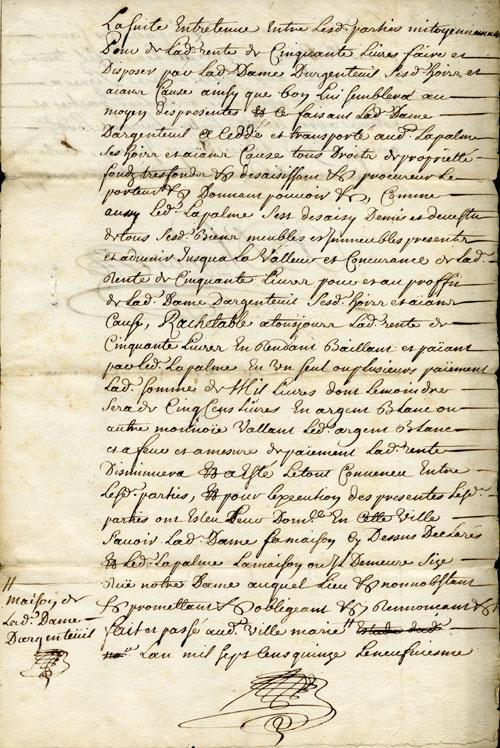 La suite Entretenue Entre Lesd. parties mitoyennement
Pour de Lad. rente de Cinquante Livres faire et
Disposer par Lad. Dame Dargenteuil Sesd. hoirs et
aians Cause ainsy que bon Luy semblera au
moyen des presentes Et Ce faisant Lad. Dame
Dargenteuil a Ceddé et transporté aud. Lapalme
Ses hoirs et aians Cause tous Droits de proprieté
fonds tresfonds &c desaisissant &c procureur Le
porteur &c Donnant pouvoir &c, Comme
aussy Led. Lapalme S'est desaisy Demis et devestu
de tous Sesd. Biens meubles et Immeubles presents
et advenir Jusqua La Valleur et Concurance de Lad.
Rente de Cinquante Livres pour et au proffit
de Lad. Dame Dargenteuil Sesd. hoirs et aians
Cause, Rachetable a tousjours Lad. rente de
Cinquante Livres En Rendant Baillant et païant
par Led. Lapalme En Un seul ou plusieurs païement
Lad. Somme de Mil Livres dont Le moindre
Sera de Cinq Cens Livres En argent Blanc ou
autre monnoie Vallant Led. argent Blanc
et a feur et a mesure de paiement Lad. rente
Diminuera Et a Esté Le tout Convenu Entre
Lesd. parties, Et pour L'execution des presentes Lesd.
parties ont Esleu Leur Dom.lle En Cette Ville
Scavoir Lad. Dame Sa maison Cy Dessus Declarés
Et Led. Lapalme La maison ou Il Demeure Size
Rüe notre Dame auquel Lieu &c nonobstant
&c promettant &c obligeant &c Renonceant &c
fait et passé aud. Ville marie
Lan mil Sept Cens quinze Le neufuiesme
maison de
Lad. Dame
Dargenteuil